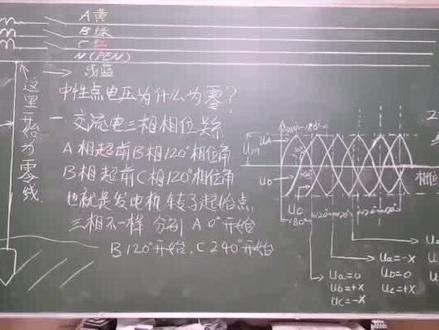 A 黄
B 绿
C 红
N(PEN)
浅蓝
这里开始为零线
中性点电压为什么为零?
一、交流电三相相位关系
A相超前B相120°相位角
B相超前C相120°相位角
也就是发电机 转子起始点
三相不一样 分别 A 0°开始
B 120°开始、C 240°开始
Um
Ub
相位
Ua=0
Ub=+X
Uc=-X
Ua=-X
Ub=0
Uc=+X